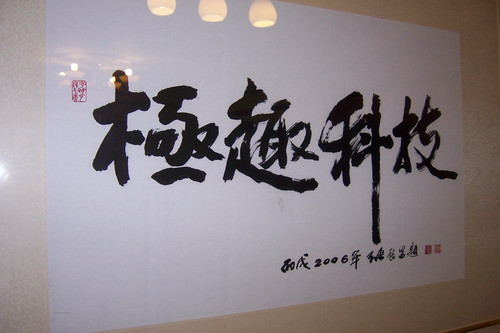 極趣科技
丙戌2006年 題